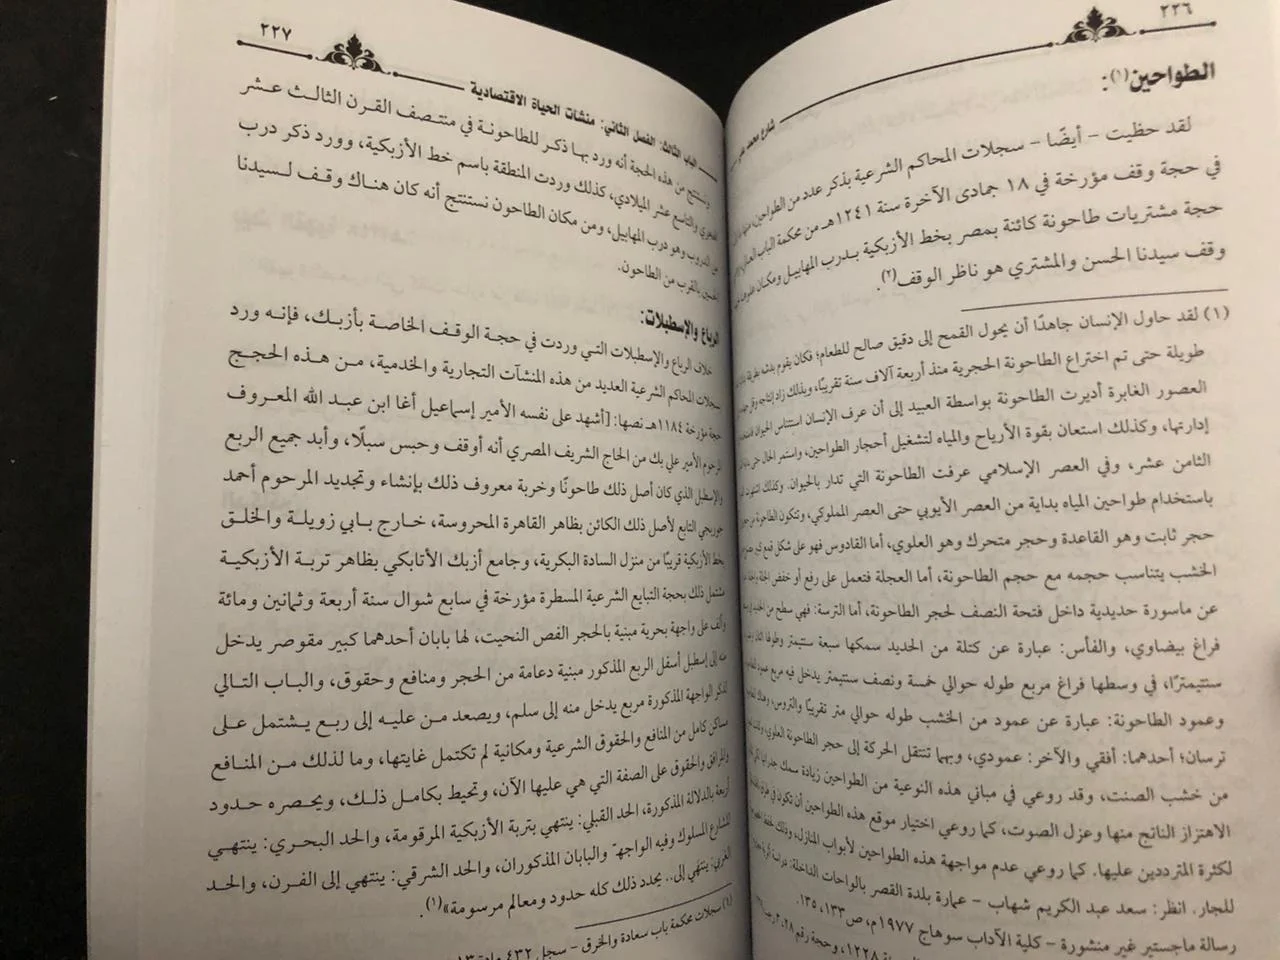 ٢٢٦
شارع محمد علي
الطواحين(١):
لقد حظيت - أيضًا - سجلات المحاكم الشرعية بذكر عدد من الطواحين،
في حجة وقف مؤرخة في ١٨ جمادى الآخرة سنة ١٢٤١هـ من محكمة الباب العالي
حجة مشتريات طاحونة كائنة بمصر بخط الأزبكية بدرب المهابيل ومكان
وقف سيدنا الحسن والمشتري هو ناظر الوقف(٢).
(١) لقد حاول الإنسان جاهدًا أن يحول القمح إلى دقيق صالح للطعام؛ فكان يقوم بدشه بطريقة
طويلة حتى تم اختراع الطاحونة الحجرية منذ أربعة آلاف سنة تقريبًا، وبذلك زاد إنتاجه
العصور الغابرة أديرت الطاحونة بواسطة العبيد إلى أن عرف الإنسان استئناس الحيوان
إدارتها، وكذلك استعان بقوة الأرياح والمياه لتشغيل أحجار الطواحين، واستمر الحال حتى
الثامن عشر، وفي العصر الإسلامي عرفت الطاحونة التي تدار بالحيوان. وكذلك
باستخدام طواحين المياه بداية من العصر الأيوبي حتى العصر المملوكي، وتتكون الطاحونة من
حجر ثابت وهو القاعدة وحجر متحرك وهو العلوي، أما القادوس فهو على شكل قمع كبير
الخشب يتناسب حجمه مع حجم الطاحونة، أما العجلة فتعمل على رفع أو خفض
عن ماسورة حديدية داخل فتحة النصف لحجر الطاحونة، أما الترسة: فهي سطح من الحديد
فراغ بيضاوي، والفأس: عبارة عن كتلة من الحديد سمكها سبعة سنتيمتر وطولها
سنتيمترًا، في وسطها فراغ مربع طوله حوالي خمسة ونصف سنتيمتر يدخل فيه مربع عمود
وعمود الطاحونة: عبارة عن عمود من الخشب طوله حوالي متر تقريبًا والتروس، وهناك
ترسان؛ أحدهما: أفقي والآخر: عمودي، وبهما تنتقل الحركة إلى حجر الطاحونة العلوي،
من خشب الصنت، وقد روعي في مباني هذه النوعية من الطواحين زيادة سمك جدرانها
الاهتزاز الناتج منها وعزل الصوت، كما روعي اختيار موقع هذه الطواحين أن تكون في
لكثرة المترددين عليها. كما روعي عدم مواجهة هذه الطواحين لأبواب المنازل، وذلك
للجار. انظر: سعد عبد الكريم شهاب - عمارة بلدة القصر بالواحات الداخلة: دراسة
رسالة ماجستير غير منشورة - كلية الآداب سوهاج ١٩٧٧م، ص١٣٣، ١٣٥.
١٢٢٨، وحجة رقم ٣٠٢٨
٢٢٧
الباب الثالث: الفصل الثاني: منشآت الحياة الاقتصادية
ونستنتج من هذه الحجة أنه ورد بها ذكر للطاحونة في منتصف القرن الثالث عشر
الهجري والتاسع عشر الميلادي، كذلك وردت المنطقة باسم خط الأزبكية، وورد ذكر درب
من الدروب وهو درب المهابيل، ومن مكان الطاحون نستنتج أنه كان هناك وقف لسيدنا
الحسين بالقرب من الطاحون.
الرباع والإسطبلات:
خلاف الرباع والإسطبلات التي وردت في حجة الوقف الخاصة بأزبك، فإنه ورد
سجلات المحاكم الشرعية العديد من هذه المنشآت التجارية والخدمية، من هذه الحجج
حجة مؤرخة ١١٨٤هـ نصها: [أشهد على نفسه الأمير إسماعيل أغا ابن عبد الله المعروف
المرحوم الأمير علي بك من الحاج الشريف المصري أنه أوقف وحبس سبلًا، وأبد جميع الربع
والإسطبل الذي كان أصل ذلك طاحونًا وخربة معروف ذلك بإنشاء وتجديد المرحوم أحمد
جوربجي التابع لأصل ذلك الكائن بظاهر القاهرة المحروسة، خارج بابي زويلة والخلق
بخط الأزبكية قريبًا من منزل السادة البكرية، وجامع أزبك الأتابكي بظاهر تربة الأزبكية
مشتمل ذلك بحجة التبايع الشرعية المسطرة مؤرخة في سابع شوال سنة أربعة وثمانين ومائة
وألف على واجهة بحرية مبنية بالحجر الفص النحيت، لها بابان أحدهما كبير مقوصر يدخل
منه إلى إسطبل أسفل الربع المذكور مبنية دعامة من الحجر ومنافع وحقوق، والباب التالي
لذكر الواجهة المذكورة مربع يدخل منه إلى سلم، ويصعد من عليه إلى ربع يشتمل على
مساكن كامل من المنافع والحقوق الشرعية ومكانية لم تكتمل غايتها، وما لذلك من المنافع
والمرافق والحقوق على الصفة التي هي عليها الآن، وتحيط بكامل ذلك، ويحصره حدود
أربعة بالدلالة المذكورة، الحد القبلي: ينتهي بتربة الأزبكية المرقومة، والحد البحري: ينتهي
للشارع المسلوك وفيه الواجهة والبابان المذكوران، والحد الشرقي: ينتهي إلى الفرن، والحد
الغربي: ينتهي إلى.. يحدد ذلك كله حدود ومعالم مرسومة»(١).
(١) سجلات محكمة باب سعادة والخرق - سجل ٤٣٢